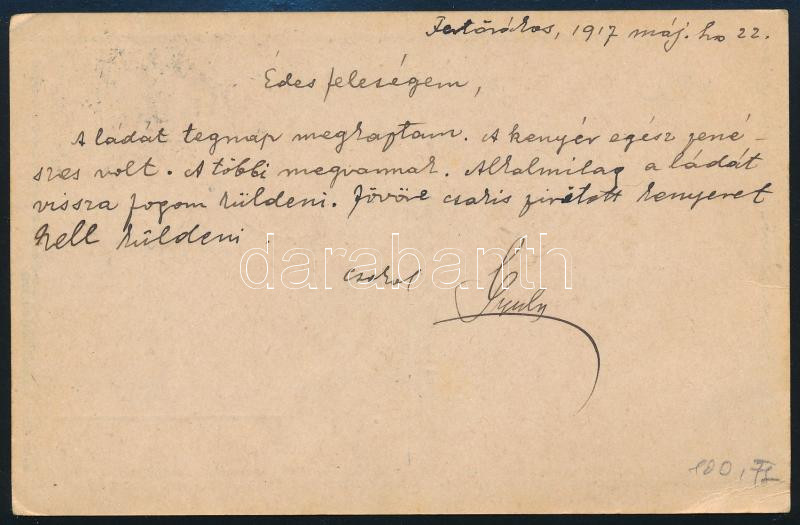 Fertőrákos, 1917 máj. hó 22.
Édes feleségem,
A ládát tegnap megkaptam. A kenyér egész pené-
szes volt. A többi megvannak. Alkalmilag a ládát
vissza fogom küldeni. Jövőre csakis pirított kenyeret
kell küldeni
csókol Gyula
darabanth
100,